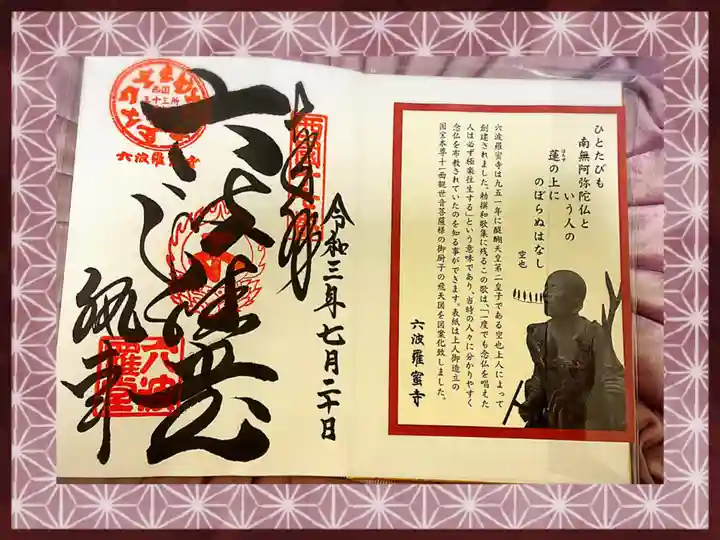 ひとたびも
南無阿弥陀仏と
いう人の
蓮の上に
はちす
のぼらぬはなし
空也
六波羅蜜寺は九五一年に醍醐天皇第二皇子である空也上人によって
創建されました。勅撰和歌集に残るこの歌は、「一度でも念仏を唱えた
人は必ず極楽往生する」という意味であり、当時の人々に分かりやすく
念仏を布教されていたのを知る事ができます。表紙は上人御造立の
国宝本尊十一面観世音菩薩様の御厨子の飛天図を図案化致しました。
六波羅蜜寺
奉拝
令和三年七月二十日
六波羅蜜寺
西国
三十三所
六波羅